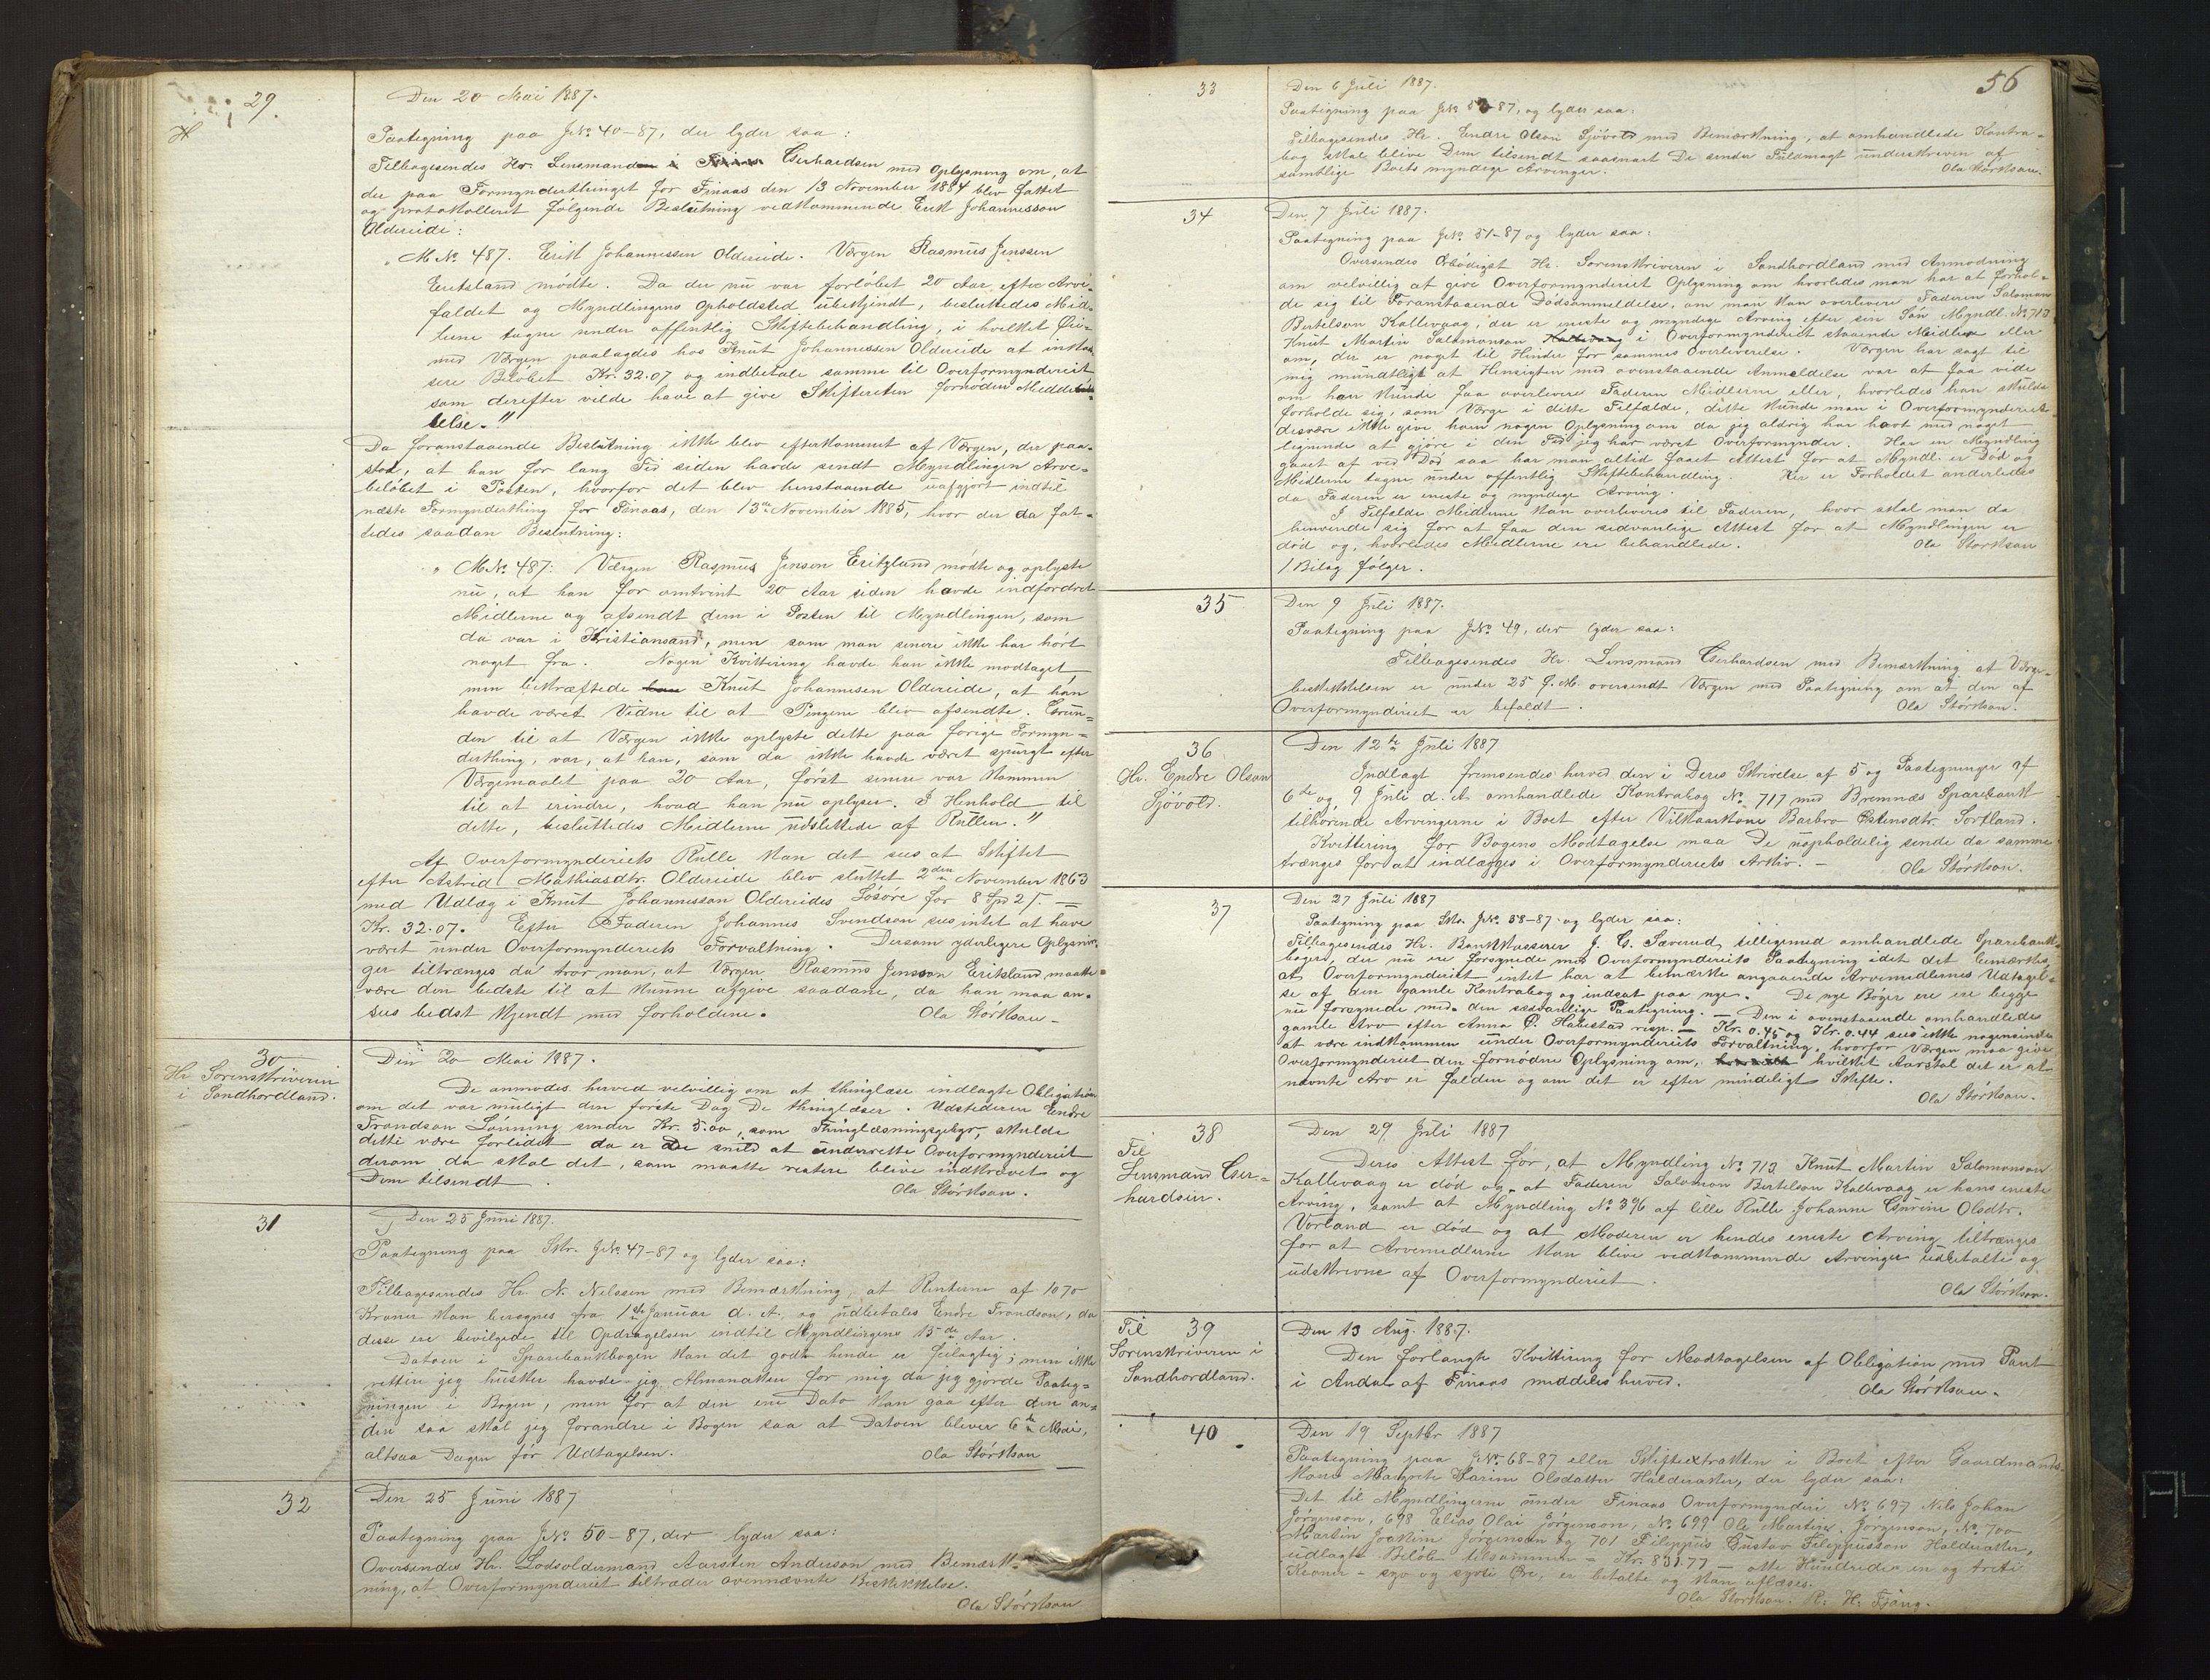 29.
H
Den 20 Mai 1887.
Paategning paa J№ 40-87, der lyder saa:
Tilbagesendes Hr. Lensmand Gerhardsen med Oplysning om, at
der paa Formynderthinget for Finaas den 13 November 1884 blev fattet
og protokolleret følgende Beslutning vedkommende Erik Johannesson
Oldereide:
"M№ 487. Erik Johannessen Oldereide. Værgen Rasmus Jenssen
Eritsland mødte. Da der nu var forløbet 20 Aar efter Arve-
faldet og Myndlingens Opholdsted ubekjendt, besluttedes Mid-
lerne tagne under offentlig Skiftebehandling, i hvilket Øie-
med Værgen paalagdes hos Knut Johannessen Oldereide at inkas-
sere Beløbet Kr. 32.07 og indbetale samme til Overformynderiet
som derefter vilde have at give Skifteretten fornøden Medde-
lelse."
Da foranstaaende Beslutning ikke blev efterkommet af Værgen, der paa-
stod, at han for lang Tid siden havde sendt Myndlingen Arve-
beløbet i Posten, hvorfor det blev henstaaende uafgjort indtil
næste Formynderthing for Finaas, den 13de November 1885, hvor der da fat-
tedes saadan Beslutning:
"M№ 487: Værgen Rasmus Jenson Eritzland mødte og oplyste
nu, at han for omtrint 20 Aar siden havde indfordret
Midlerne og afsendt dem i Posten til Myndlingen, som
da var i Kristiansand, men som man senere ikke har hørt
noget fra. Nogen Kvittering havde han ikke modtaget
men bekræftede Knut Johannesen Oldereide, at han
havde været Vidne til at Pengene blev afsendte. Grun-
den til at Værgen ikke oplyste dette paa forige Formyn-
derthing, var, at han, som da ikke havde været spurgt efter
Værgemaalet paa 20 Aar, først senere var kommen
til at erindre, hvad han nu oplyser. I Henhold til
dette, besluttedes Midlerne udslettede af Rullen."
Af Overformynderiets Rulle kan det sees at Skiftet
efter Astrid Mathiasdtr. Oldereide blev sluttet 2den November 1863
med Udlæg i Knut Johannesson Oldereides Løsøre for 8 Spd 2 f. =
Kr. 32.07. Efter Faderen Johannes Svendson sees intet at have
været under Overformynderiets Forvaltning. Dersom yderligere Oplysnin-
ger tiltrænges da tror man, at Værgen Rasmus Jensson Eritsland maatte
være den bedste til at kunne afgive saadane, da han maa an-
sees bedst kjendt med forholdene. Ola Størkson
30
Hr. Sorenskriveren
i Søndhordland.
Den 20 Mai 1887.
De anmodes herved velvillig om at thinglæse indlagte Obligation
om det var muligt den første Dag De thinglæser. Udstederen Endre
Trondson Lønning sender Kr. 5.00, som Thinglæsningsgebyr, skulde
dette være forlidet da er De snild at underrette Overformynderiet
derom da skal det, som maatte restere blive indkrævet og
Dem tilsendt. Ola Størkson.
31
Den 25 Juni 1887.
Paategning paa Skr. J№ 47-87 og lyder saa:
Tilbagesendes Hr. N. Nilssen med Bemærkning, at Renterne af 1070
Kroner kan beregnes fra 1ste Januar d. A. og udbetales Endre Trondson, da
disse ere bevilgede til Opdragelsen indtil Myndlingens 15de Aar.
Datoen i Sparebankbogen kan det godt hende er feilagtig; men ikke
rettere jeg husker havde jeg Almanakken for mig da jeg gjorde Paateg-
ningen i Bogen, men for at den ene Dato kan gaa efter den an-
den saa skal jeg forandre i Bogen saa at Datoen bliver 6te Mai,
altsaa Dagen før Udtagelsen. Ola Størkson
32
Den 25 Juni 1887
Paategning paa J№ 50-87, der lyder saa:
Oversendes Hr. Lodsoldermand Aarsten Anderson med Bemærk-
ning, at Overformynderiet tiltræder ovennævnte Beskikkelse.
Ola Størkson
56
33
Den 6 Juli 1887.
Paategning paa J№ 52-87, og lyder saa:
Tilbagesendes Hr. Endre Olson Sjøvold med Bemærkning, at omhandlede Kontra-
bog skal blive Dem tilsendt saasnart De sender Fuldmagt underskreven af
samtlige Boets myndige Arvinger. Ola Størkson.
34
Den 7 Juli 1887.
Paategning paa J№ 51-87 og lyder saa:
Oversendes Ærbødigst Hr. Sorenskriveren i Søndhordland med Anmodning
om velvillig at give Overformynderiet Oplysning om hvorledes man har at forhol-
de sig til Foranstaaende Dødsanmeldelse, om man kan overlevere Faderen Salomon
Bertelson Kallevaag, der er eneste og myndige Arving efter sin Søn Myndl. №712
Knut Martin Salomonson i Overformynderiet staaende Midler eller
om, der er noget til Hinder for sammes Overleverelse. Værgen har sagt til
mig mundtligt at Hensigten med ovenstaaende Anmeldelse var at faa vide
om han kunde faa overlevere Faderen Midlerne eller, hvorledes han skulde
forholde sig, som Værge i dette Tilfælde, dette kunde man i Overformynderiet
desværre ikke give ham nogen Oplysning om da jeg aldrig har havt med noget
lignende at gjøre i den Tid jeg har været Overformynder. Har en Myndling
gaaet af ved Død saa har man altid faaet Attest for at Myndl. er Død og
Midlerne tagne under offentlig Skiftebehandling. Her er Forholdet anderledes
da Faderen er eneste og myndige Arving.
I Tilfælde Midlerne kan overleveres til Faderen, hvor skal man da
henvende sig for at faa den sedvanlige Attest for at Myndlingen er
død og, hvorledes Midlerne ere behandlede. Ola Størkson
1 Bilag følger.
35
Den 9 Juli 1887.
Paategning paa J№ 49, der lyder saa:
Tilbagesendes Hr. Lensmand Gerhardsen med Bemærkning at Værge-
beskikkelsen er under 25 f. M. oversendt Værgen med Paategning om at den af
Overformynderiet er befaldt. Ola Størkson.
36
Hr. Endre Olson
Sjøvold.
Den 12te Juli 1887
Indlagt fremsendes herved den i Deres Skrivelse af 5 og Paategninger af
6te og 9 Juli d. A. omhandlede Kontrabog № 717 med Bremnæs Sparebank
tilhørende Arvingerne i Boet efter Vilkaarskone Barbro Østensdtr. Sortland.
Kvittering for Bogens Modtagelse maa De uopholdelig sende da samme
trænges for at indlægges i Overformynderiets Arkiv. — Ola Størkson.
37
Den 27 Juli 1887
Paategning paa Skr. J№ 58-87 og lyder saa:
Tilbagesendes Hr. Bankkasserer J. G. Sæverud, tilligemed omhandlede Sparebank-
bøger, der nu ere forsynede med Overformynderiets Paategning idet det bemærkes,
at Overformynderiet intet har at bemærke angaaende Arvemidlernes Udtagel-
se af den gamle Kontrabog og indsat paa nye. De nye Bøger ere ere begge
nu forsynede med den sædvanlige Paategning. — Den i ovenstaaende omhandlede
gamle Arv efter Anna P. Habestad resp. — Kr. 0.45 og Kr. 0.44 sees ikke nogensinde
at være indkommen under Overformynderiets Forvaltning, hvorfor Værgen maa give
Overformynderiet den fornødne Oplysning om, hvilket Aarstal det er at
nævnte Arv er falden og om det er efter mindeligt Skifte.
Ola Størkson.
38
Til
Lensmand Ger-
hardsen.
Den 29 Juli 1887
Deres Attest for, at Myndling № 712 Knut Martin Salomonson
Kallevaag er død og at Faderen Salomon Bertelson Kallevaag er hans eneste
Arving, samt at Myndling № 396 af lille Rulle Johanne Gurine Olsdtr.
Vorland er død og at Moderen er hendes eneste Arving tiltrænges
for at Arvemidlerne kan blive vedkommende Arvinger udbetalte og
udskrevne af Overformynderiet.
Ola Størkson.
Til 39
Sorenskriveren i
Søndhordland.
Den 13 Aug. 1887.
Den forlangte Kvittering for Modtagelsen af Obligation med Pant
i Andal af Finaas meddeles herved.
Ola Størkson.
40
Den 19 Septbr 1887
Paategning paa J№ 68-87 eller Skifteextrakten i Boet efter Gaardmands-
kone Margrete Karine Olsdatter Halderaker, der lyder saa:
Det til Myndlingerne under Finaas Overformynderi № 697 Nils Johan
Jørgenson, 698 Elias Olai Jørgenson, № 699 Ole Martin Jørgenson, № 700
Martin Joakim Jørgenson og 701 Filippus Gustav Filippusson Halderaker,
udlagte Beløb tilsammen = Kr. 831.77 — otte Hundreder en og Treti
Kroner — syv og sytti Øre, er betalte og kan aflæses.
Ola Størkson. R. H. Fjang.